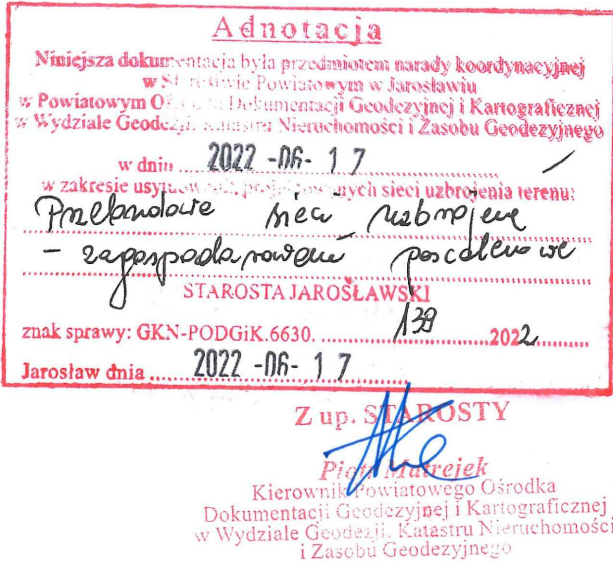 Adnotacja
Niniejsza dokumentacja była przedmiotem narady koordynacyjnej
w Starostwie Powiatowym w Jarosławiu
w Powiatowym Ośrodku Dokumentacji Geodezyjnej i Kartograficznej
w Wydziale Geodezji, Katastru Nieruchomości i Zasobu Geodezyjnego
w dniu 2022 -06- 17
w zakresie usytuowania projektowanych sieci uzbrojenia terenu:
Przebudowie sieci uzbrojenia
- zagospodarowanie poscaleniowe
STAROSTA JAROSŁAWSKI
znak sprawy: GKN-PODGiK.6630. 139 2022
Jarosław dnia 2022 -06- 17
Z up. STAROSTY
Piotr Matrejek
Kierownik Powiatowego Ośrodka
Dokumentacji Geodezyjnej i Kartograficznej
w Wydziale Geodezji, Katastru Nieruchomości
i Zasobu Geodezyjnego